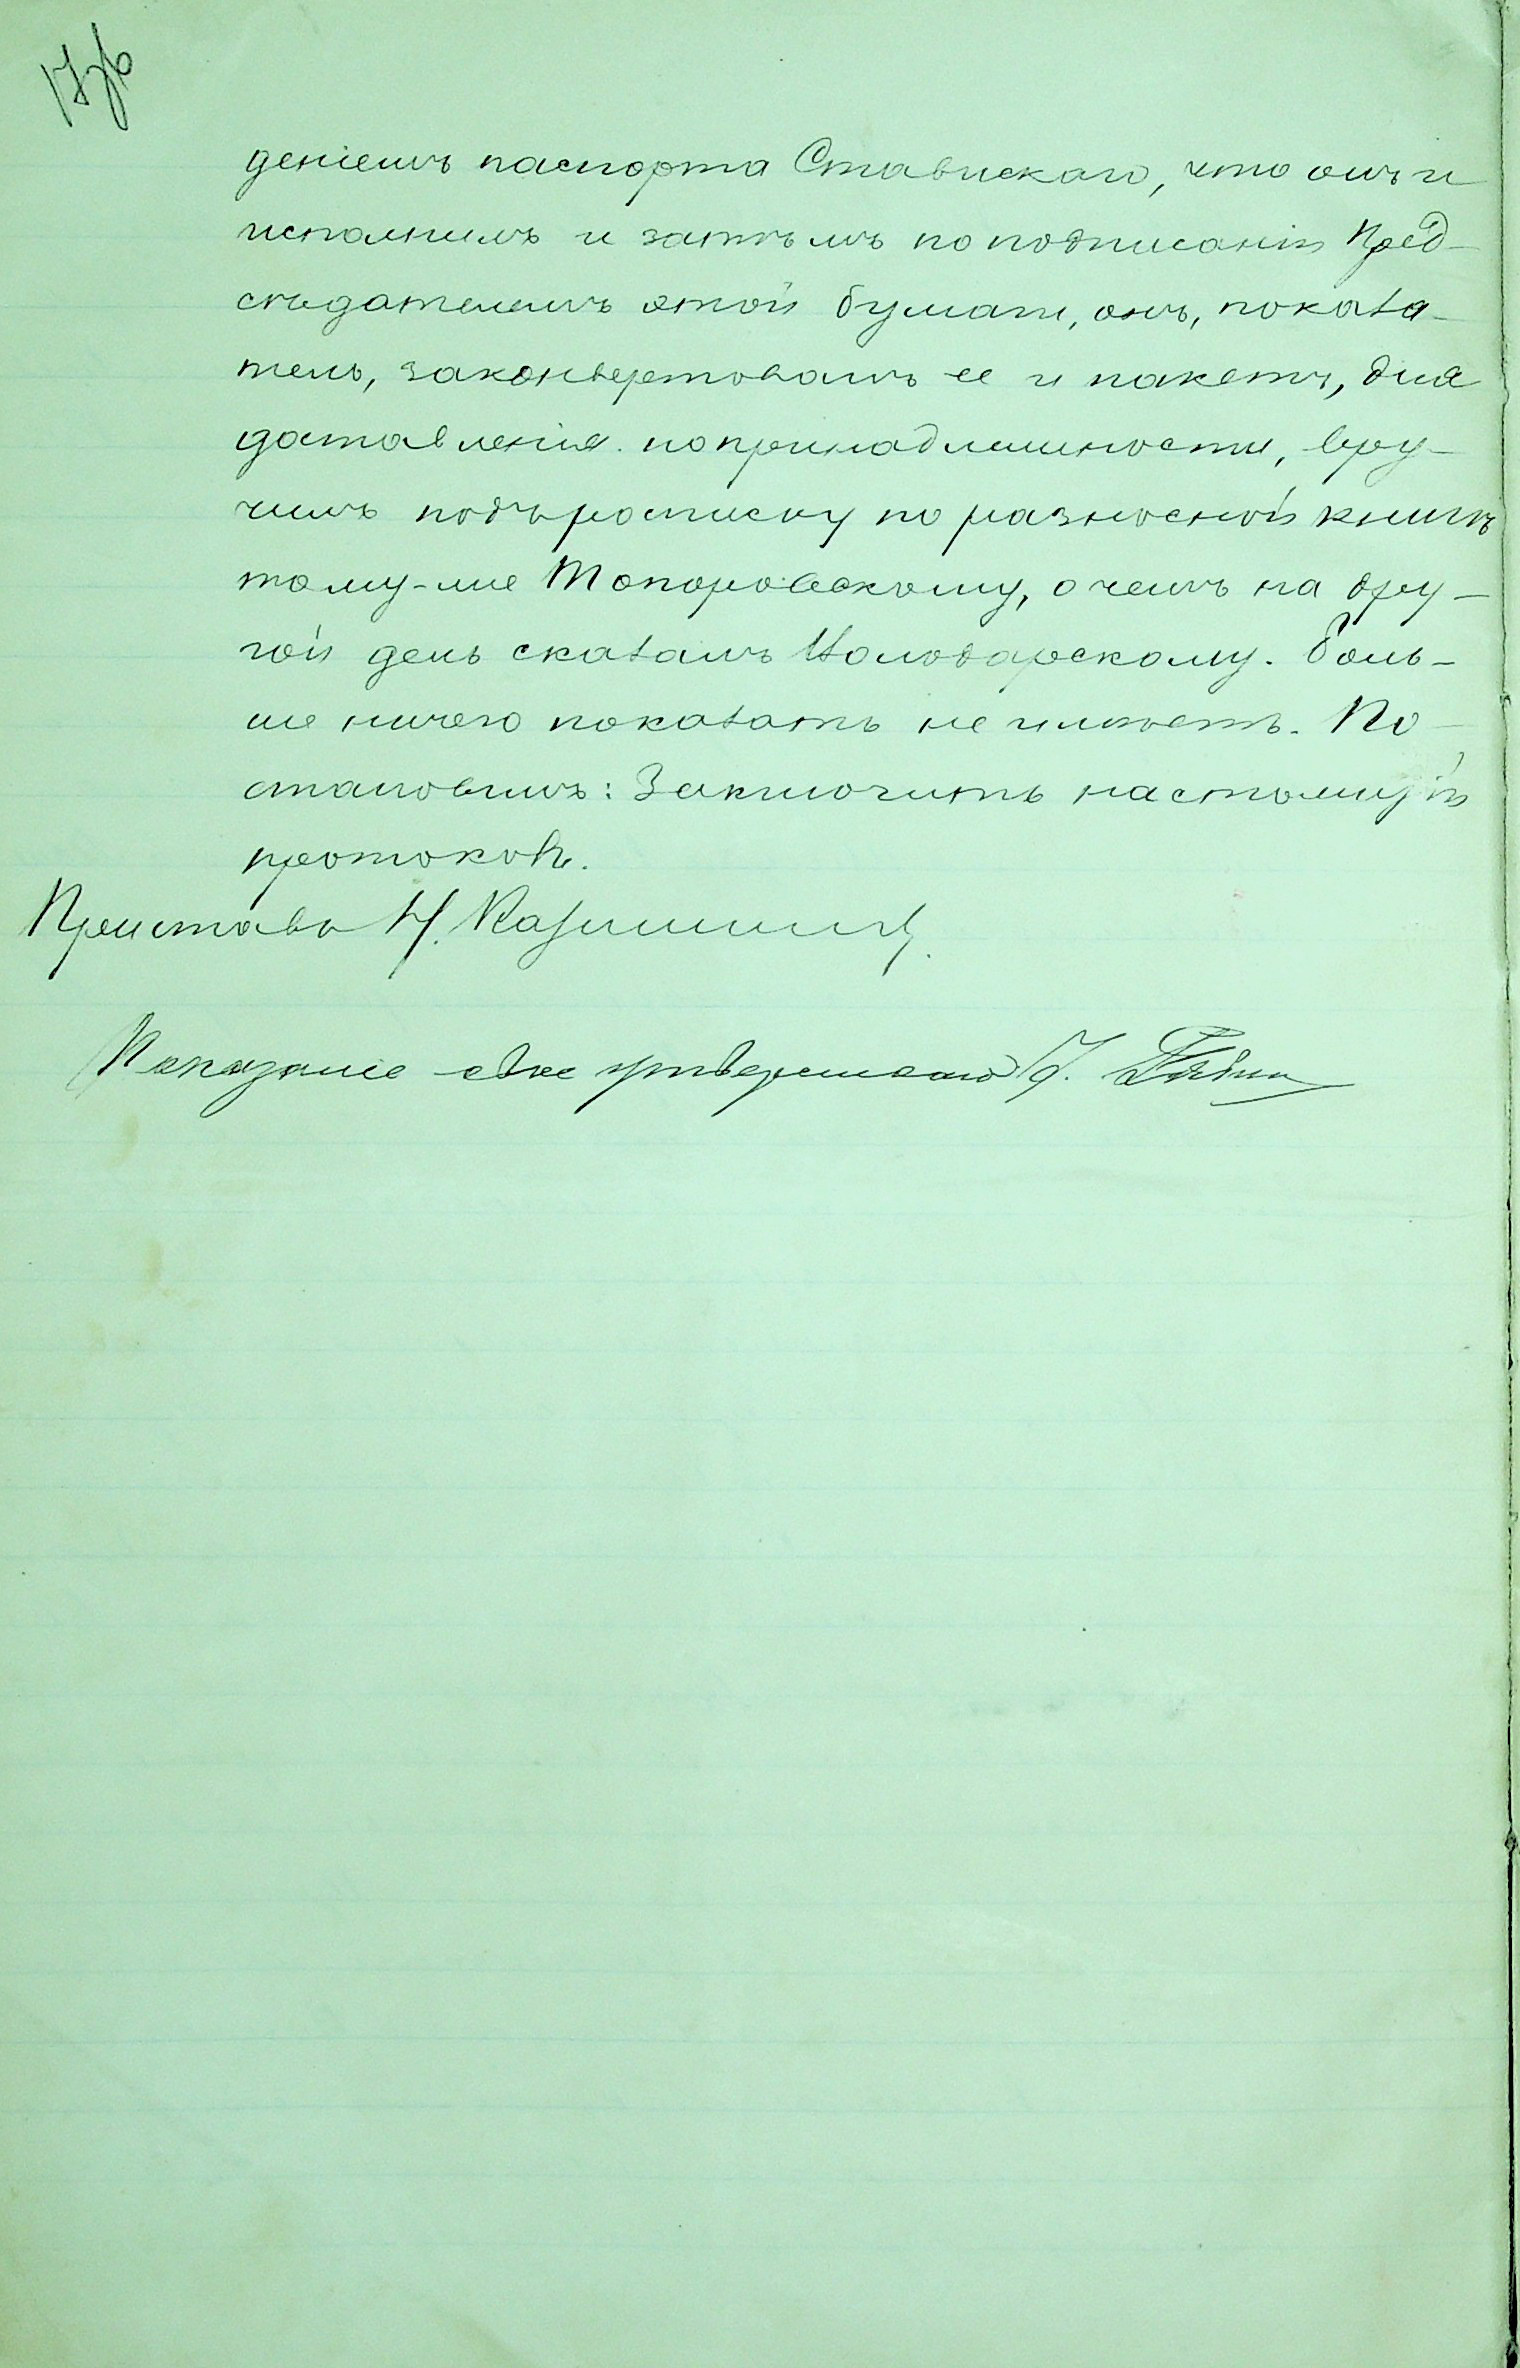 деніемъ паспорта Ставискаго, что онъ и
исполнилъ и затѣмъ по подписаніи Пред-
сѣдателемъ этой бумаги, онъ, показа-
тель, законвертовалъ ее и пакетъ, для
доставленія по принадлежности, вру-
чилъ подъ росписку по разносной книгѣ
тому-же Топоровскому, о чемъ на дру-
гой день сказалъ Володарскому. Боль-
ше ничего показать не имѣетъ. По-
становилъ: Заключить настоящій
протоколъ.
Приставъ Н.
Показаніе свое утверждаю